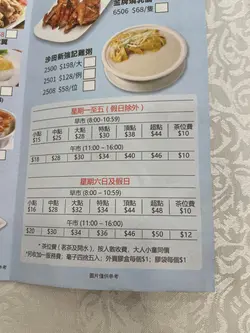 金牌燒乳鴿
6506 $68/隻
沙田新強記雞粥
2500 $198/大
2501 $128/例
2508 $58/位
星期一至五(假日除外)
早市 (8:00-10:59)
小點 中點 大點 特點 頂點 超點 茶位費
$15 $25 $28 $32 $38 $44 $10
午市 (11:00-16:00)
$18 $28 $30 $34 $40 $46 $10
星期六日及假日
早市 (8:00-10:59)
小點 中點 大點 特點 頂點 超點 茶位費
$16 $28 $32 $36 $40 $48 $10
午市 (11:00-16:00)
$20 $30 $34 $46 $50 $12
*茶位費(茗茶及開水),按人數收費,大人小童同價
*另收加一服務費;毒子四拱五人;外賣膠盒每個$1;膠袋每個$1!
圖片僅供參考